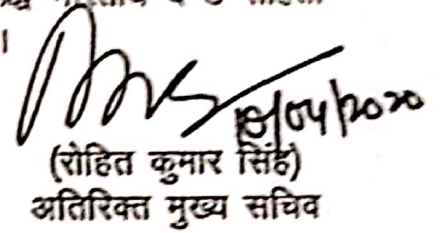 ।
18/04/2020
(रोहित कुमार सिंह)
अतिरिक्त मुख्य सचिव